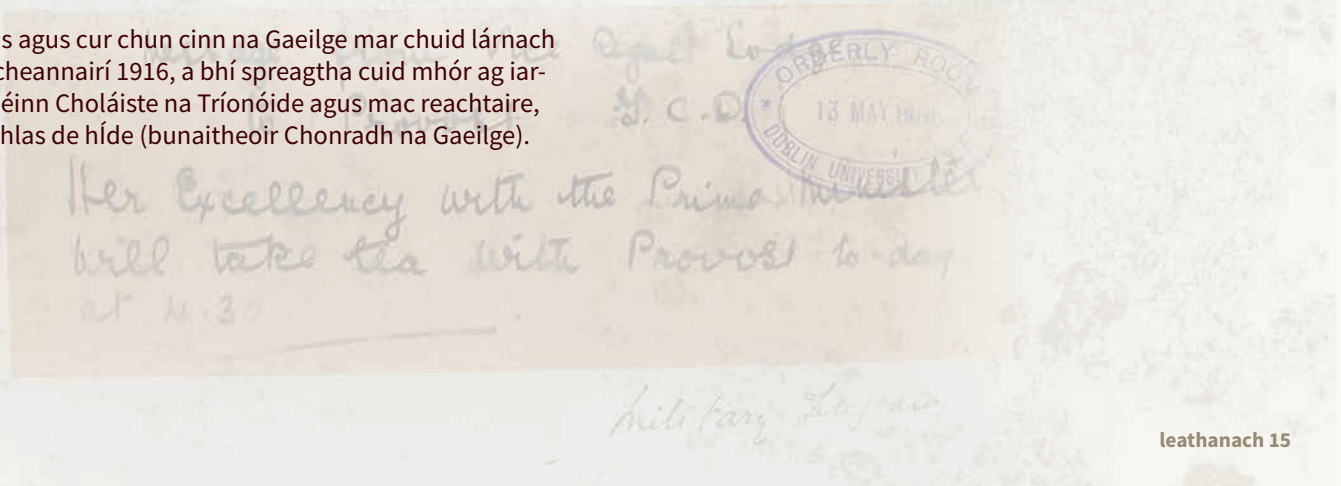 s agus cur chun cinn na Gaeilge mar chuid lárnach
cheannairí 1916, a bhí spreagtha cuid mhór ag iar-
éinn Choláiste na Tríonóide agus mac reachtaire,
hlas de hÍde (bunaitheoir Chonradh na Gaeilge).
Provost T.C.D.
ORDERLY ROOM
13 MAY
DUBLIN UNIVERSITY
Her Excellency with the Prime Minister
will take tea with Provost to-day
at 4.30
military
leathanach 15